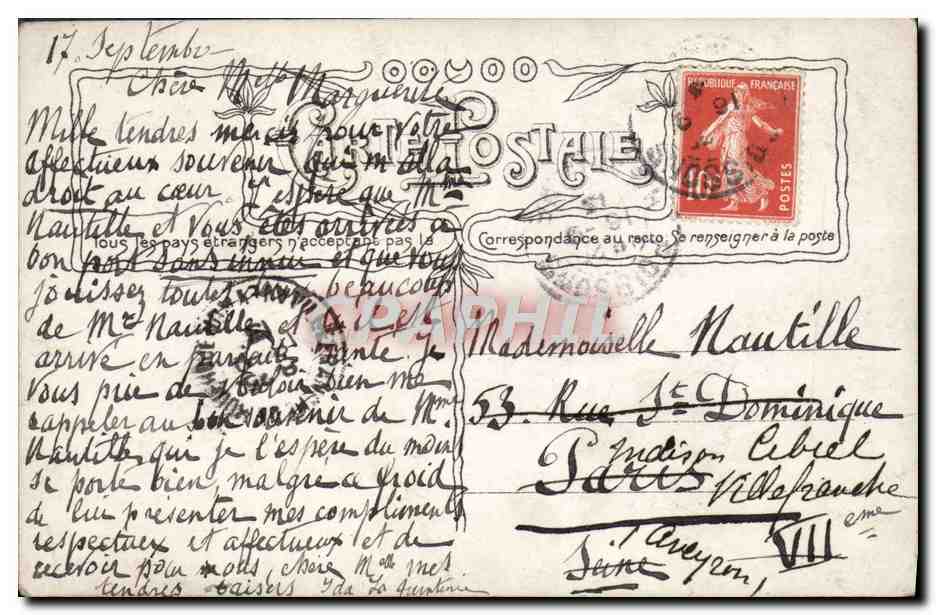 17. Septembre
Chère Melle Marguerite,
Mille tendres mercis pour votre
affectueux souvenir qui m'alla
droit au cœur. J'espère que Mme
Nautille et vous êtes arrivées à
bon port sans ennui et que vous
jouissez toutes deux beaucoup
de Mr Nautille et qu'il est
arrivé en parfaite santé. Je
vous prie de vouloir bien me
rappeler au bon souvenir de Mme
Nautille qui je l'espère du moins
se porte bien, malgré ce froid
de lui présenter mes compliments
respectueux et affectueux et de
recevoir pour vous, chère Melle mes
tendres baisers Ida La Quintinie
CARTE POSTALE
Tous les pays étrangers n'acceptent pas la
Correspondance au recto, Se renseigner à la poste
REPUBLIQUE FRANÇAISE
10
POSTES
CPAPHIL
Mademoiselle Nautille
53. Rue St. Dominique
Cibiel
Paris
Villefranche
VIIeme
Aveyron,
Seine